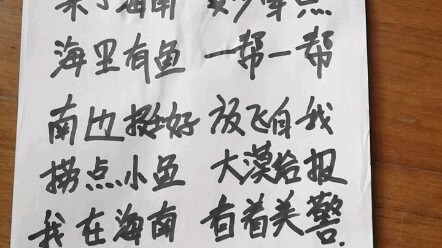 来了海南
海里有鱼 一帮一帮
南边挺好 放飞自我
捞点小鱼 大漠给报
我在海南 看着美警